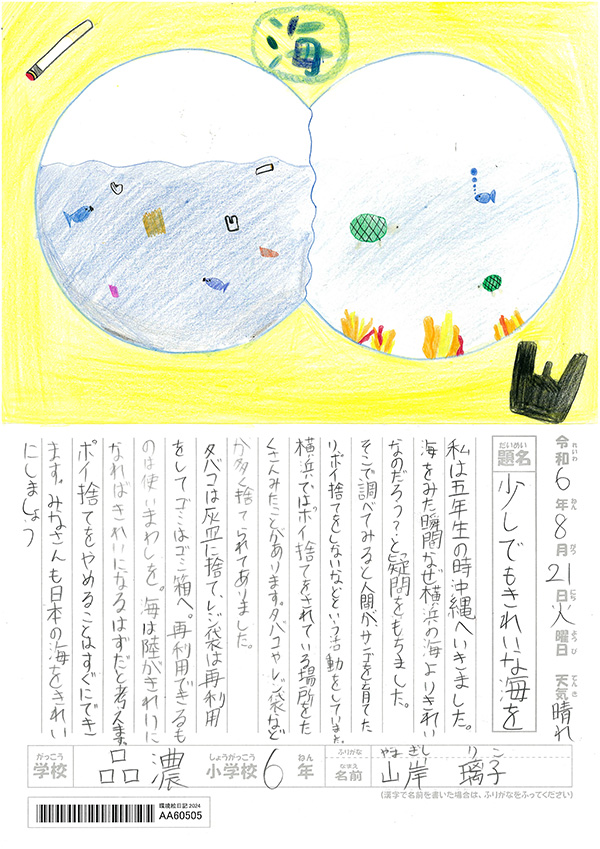 海
令和6年8月21日火曜日 天気晴れ
れいわ ねん がつ にち ようび てんき
だいめい
題名
少しでもきれいな海を
私は五年生の時沖縄へいきました。
海をみた瞬間なぜ横浜の海よりきれい
なのだろう?と疑問をもちました。
そこで調べてみると人間がサンゴを育てた
りポイ捨てをしないなどという活動をしていました。
横浜ではポイ捨てをされている場所をた
くさんみたことがあります。タバコやレジ袋など
が多く捨てられてありました。
タバコは灰皿に捨て、レジ袋は再利用
をしてゴミはゴミ箱へ。再利用できるも
のは使いまわしを。海は陸がきれいに
なればきれいになるはずだと考えます。
ポイ捨てをやめることはすぐにでき
ます。みなさんも日本の海をきれい
にしましょう
がっこう
学校
品濃
しょうがっこう
小学校
6
ねん
年
ふりがな
やまぎし りこ
なまえ
名前
山岸 璃子
(漢字で名前を書いた場合は、ふりがなをふってください)
環境絵日記2024
AA60505